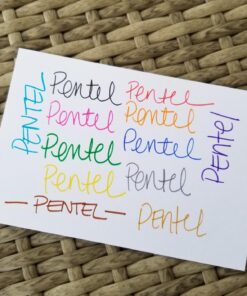 PENTEL
Pentel Pentel
Pentel Pentel
Pentel Pentel
Pentel Pentel
PENTEL
— PENTEL — Pentel